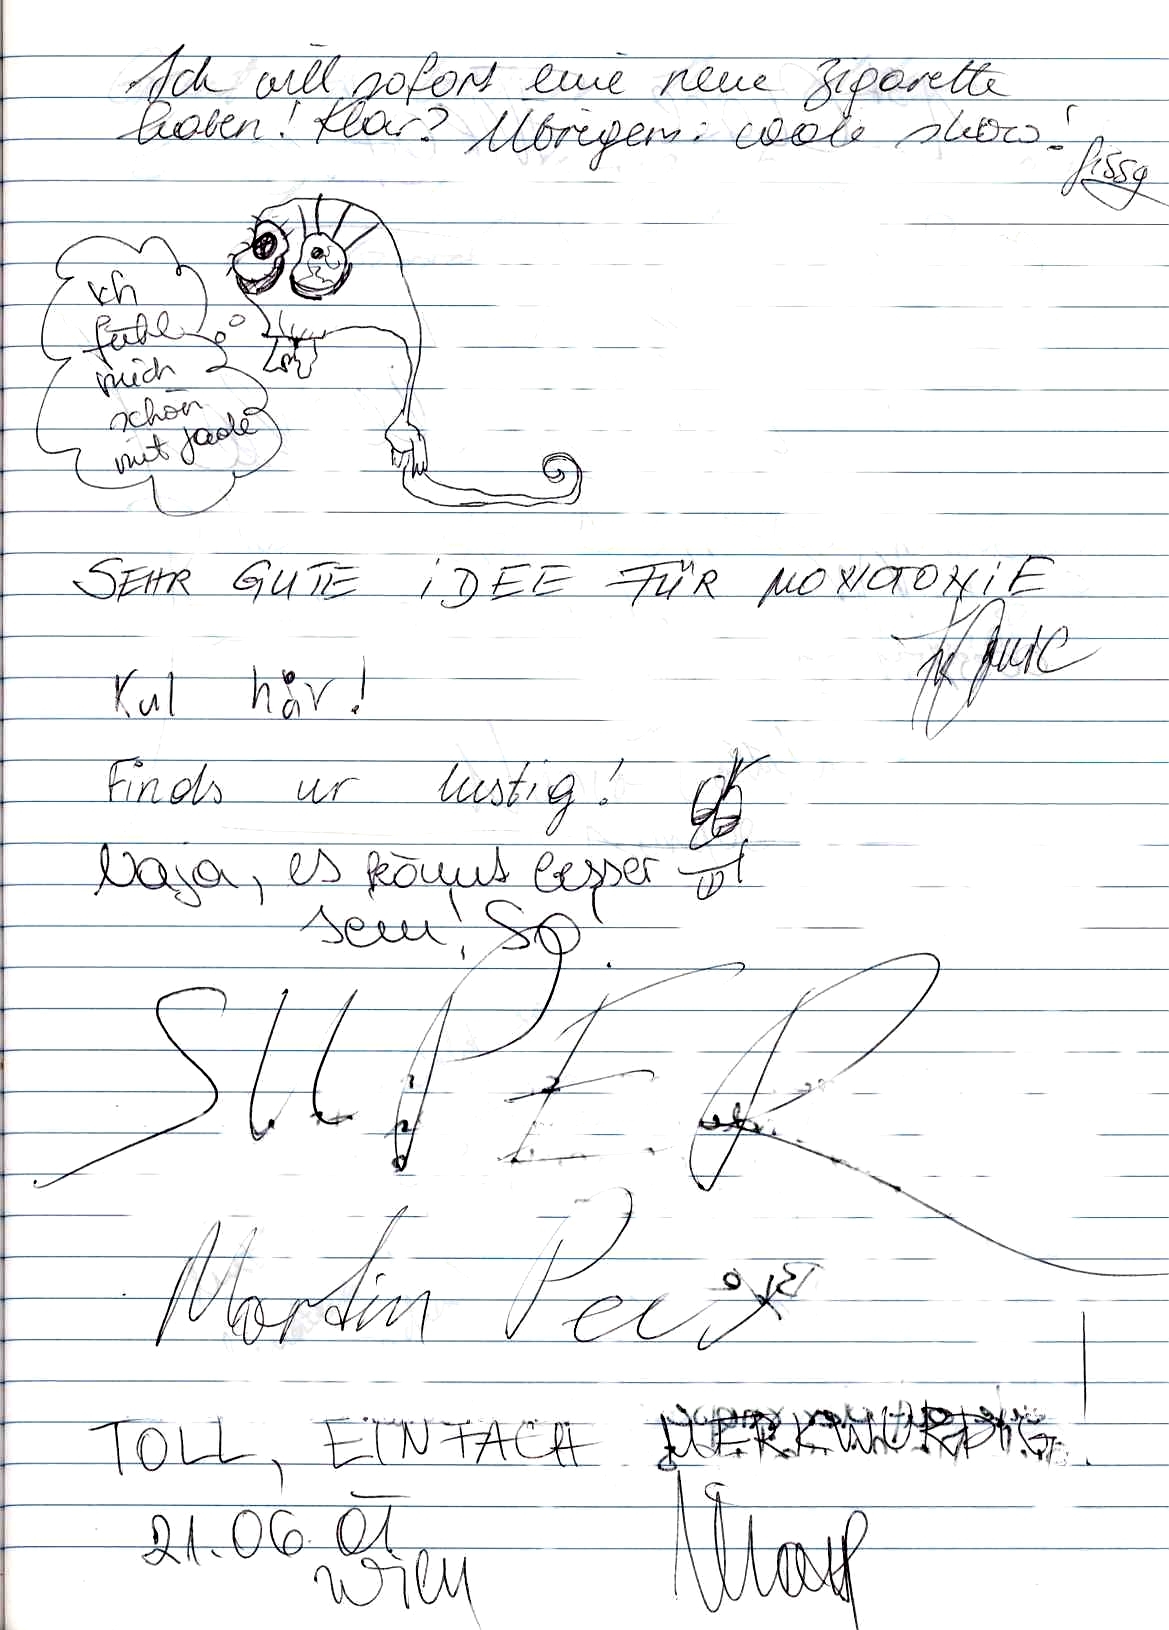 Ich will sofort eine neue Zigarette
haben! Klar? Übrigens: coole show!
ich
fühl
mich
schön
mit jade
SEHR GUTE iDEE FÜR MONOTONiE
Kul här!
Finds ur lustig!
Naja, es könnt besser
sein! So
SUPER
Martin
TOLL, EINFACH MERKWÜRDIG!
21.06.01
Wien